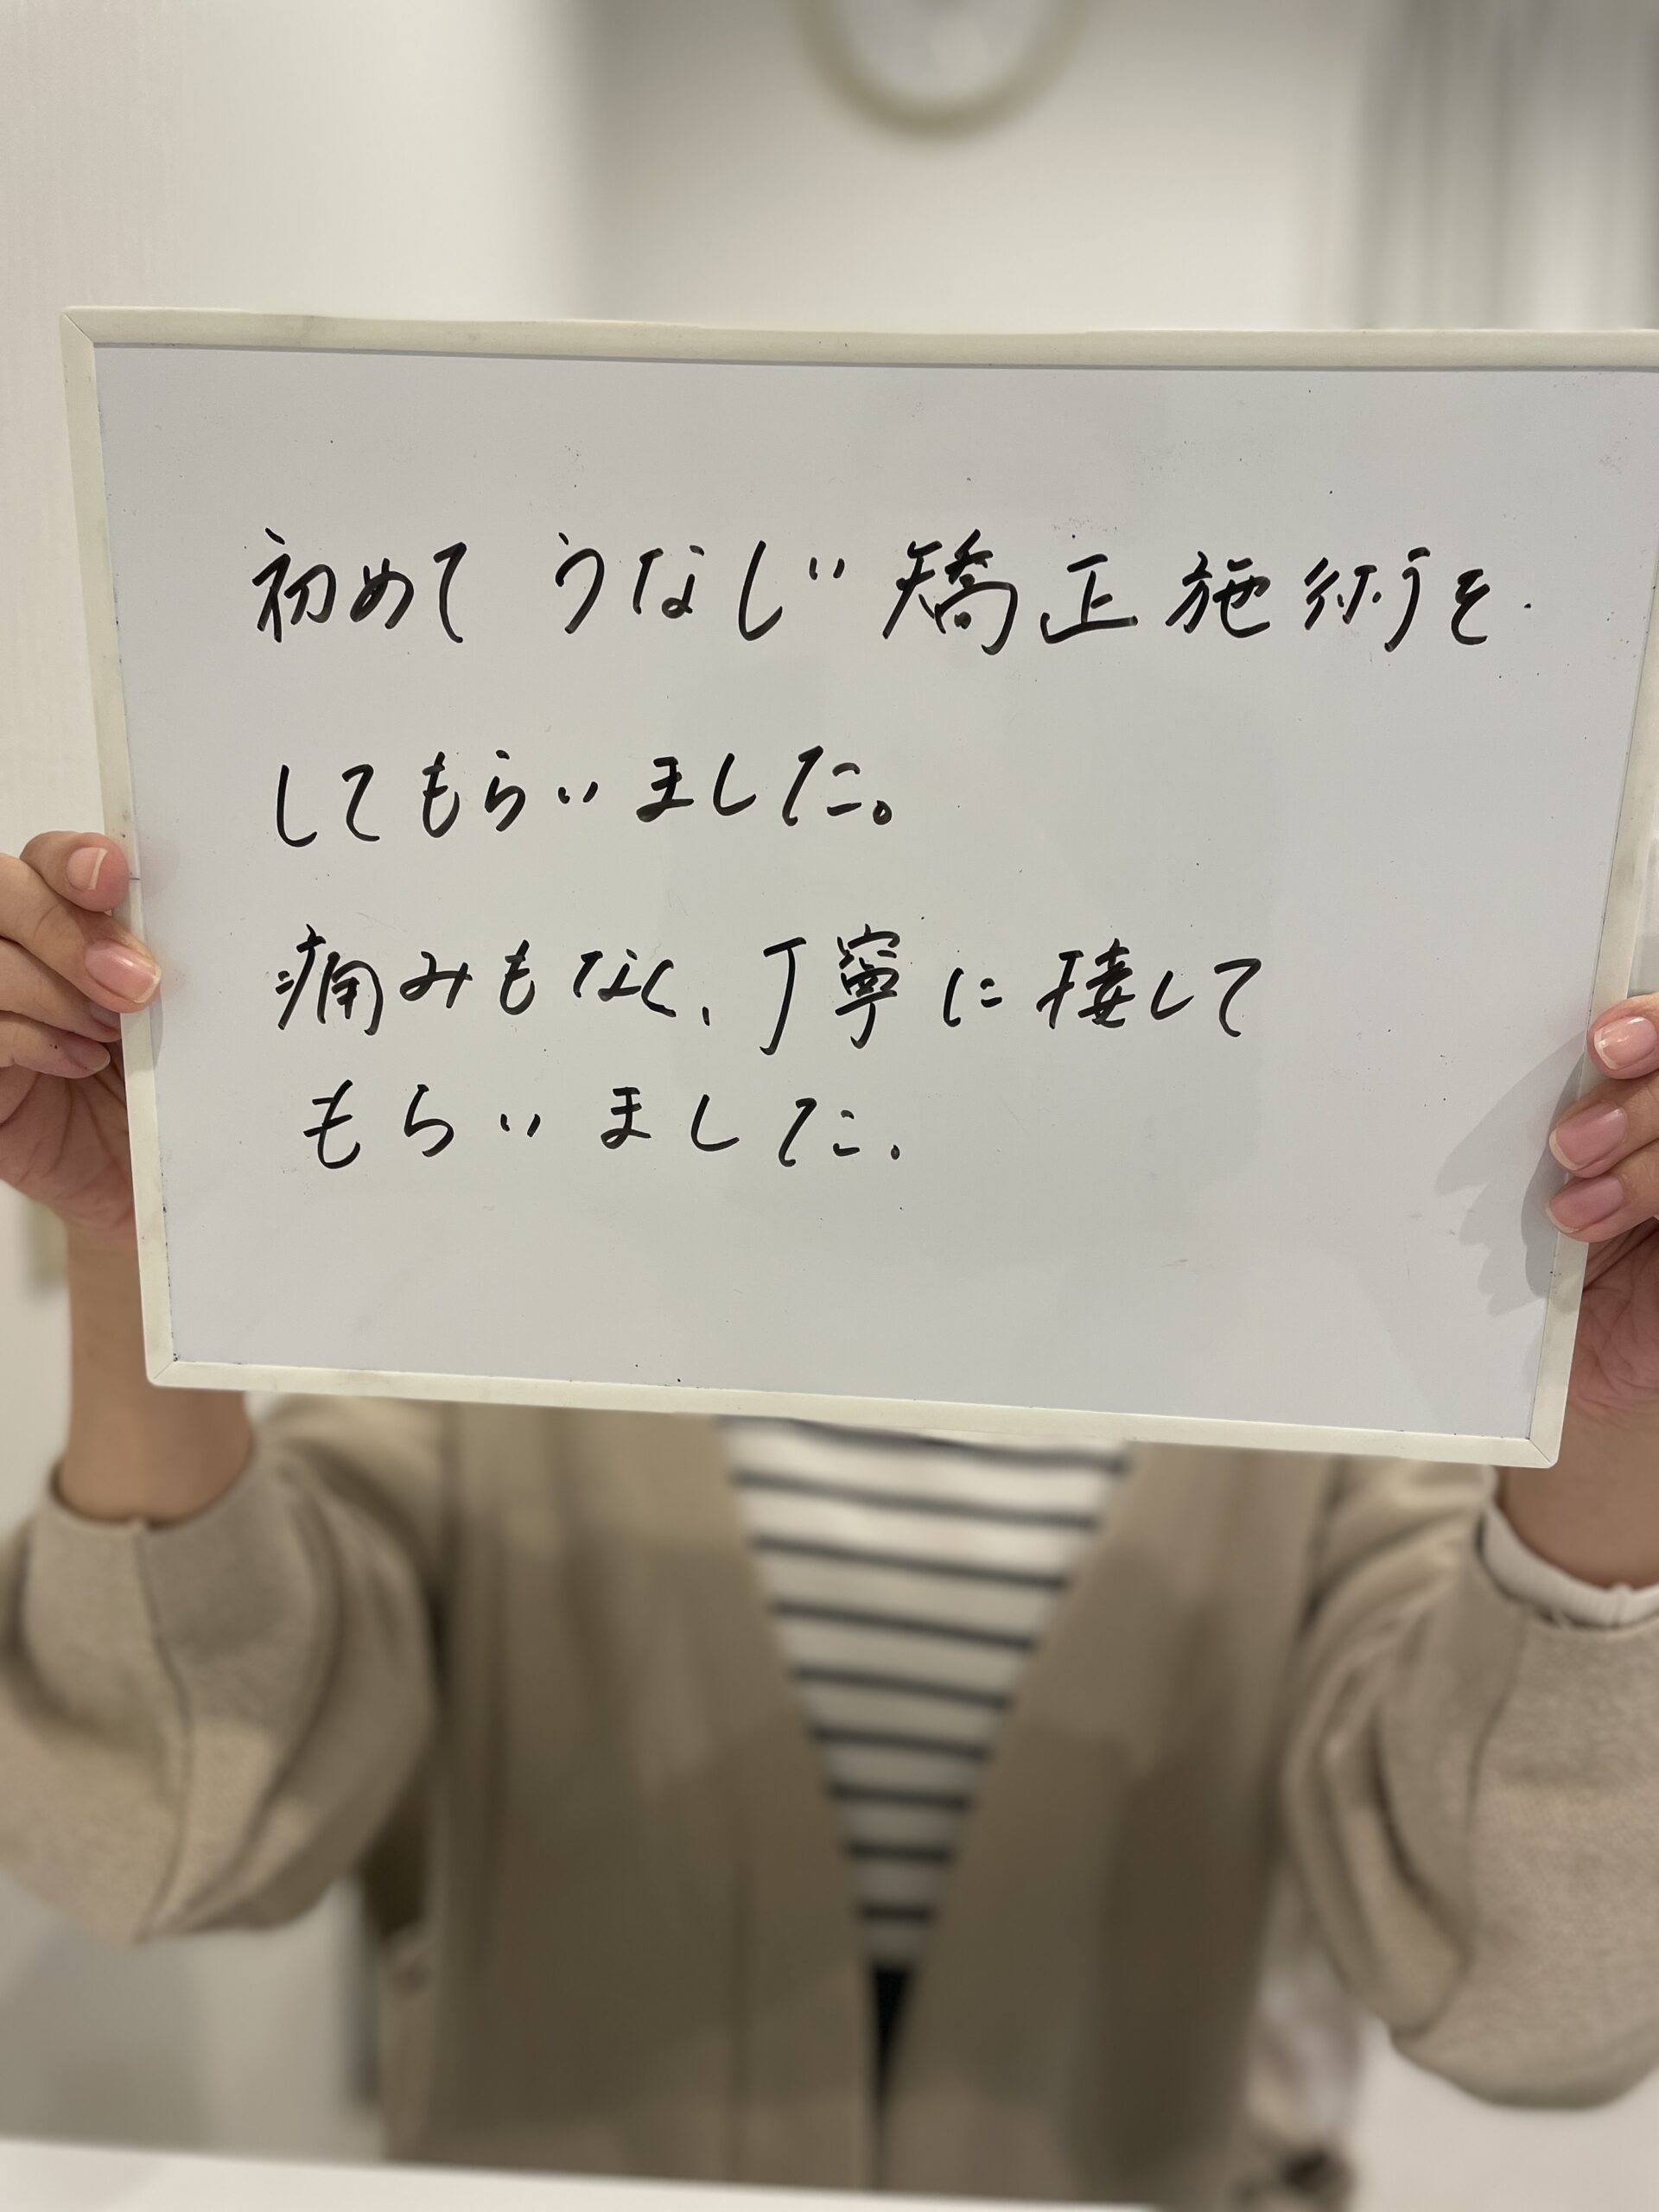 初めて うなじ矯正施術を
してもらいました。
痛みもなく、丁寧に接して
もらいました.